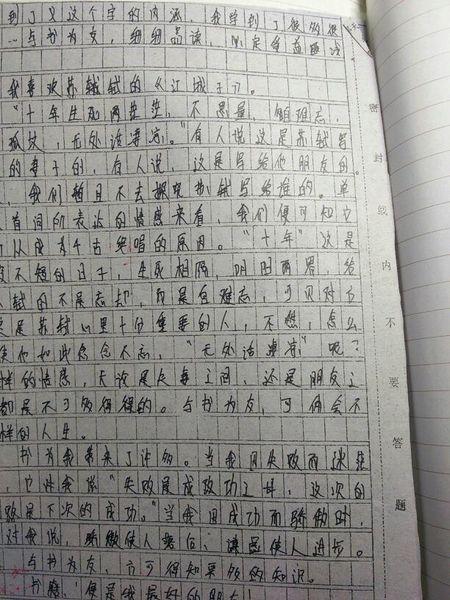 到了义这个字的内涵，我学到了很多很
与书为友，细细品读，必定受益匪浅
我喜欢苏轼的《江城子》。
"十年生死两茫茫，不思量，自难忘，
孤坟，无处话凄凉。"有人说这是苏轼写
的妻子的，有人说，这是写给他朋友的。
，我们暂且不去探究书轼写给谁的。单
首词所表达的情感来看，我们便可知它
可以成为千古绝唱的原因。"十年"这是
不短的日子，生死相隔，阴阳两界，给
轼的不是忘却，而是自难忘，可见对方
是苏轼心里十分重要的人，不然，怎么
使他如此念念不忘，"无处话凄凉"呢？
样的情感，无论是夫妻之间，还是朋友之
都是不可多得的。与书为友，可体会不
样的人生。
书为我带来了许多。当我因失败而迷茫
，它对我说"失败是成功之母，这次的
败是下次的成功。"当我因成功而骄傲时，
对我说，骄傲使人落后，谦虚使人进步。
与书为友，方可得知更多的知识。
书籍，便是我最好的朋友！
密封线内不要答题